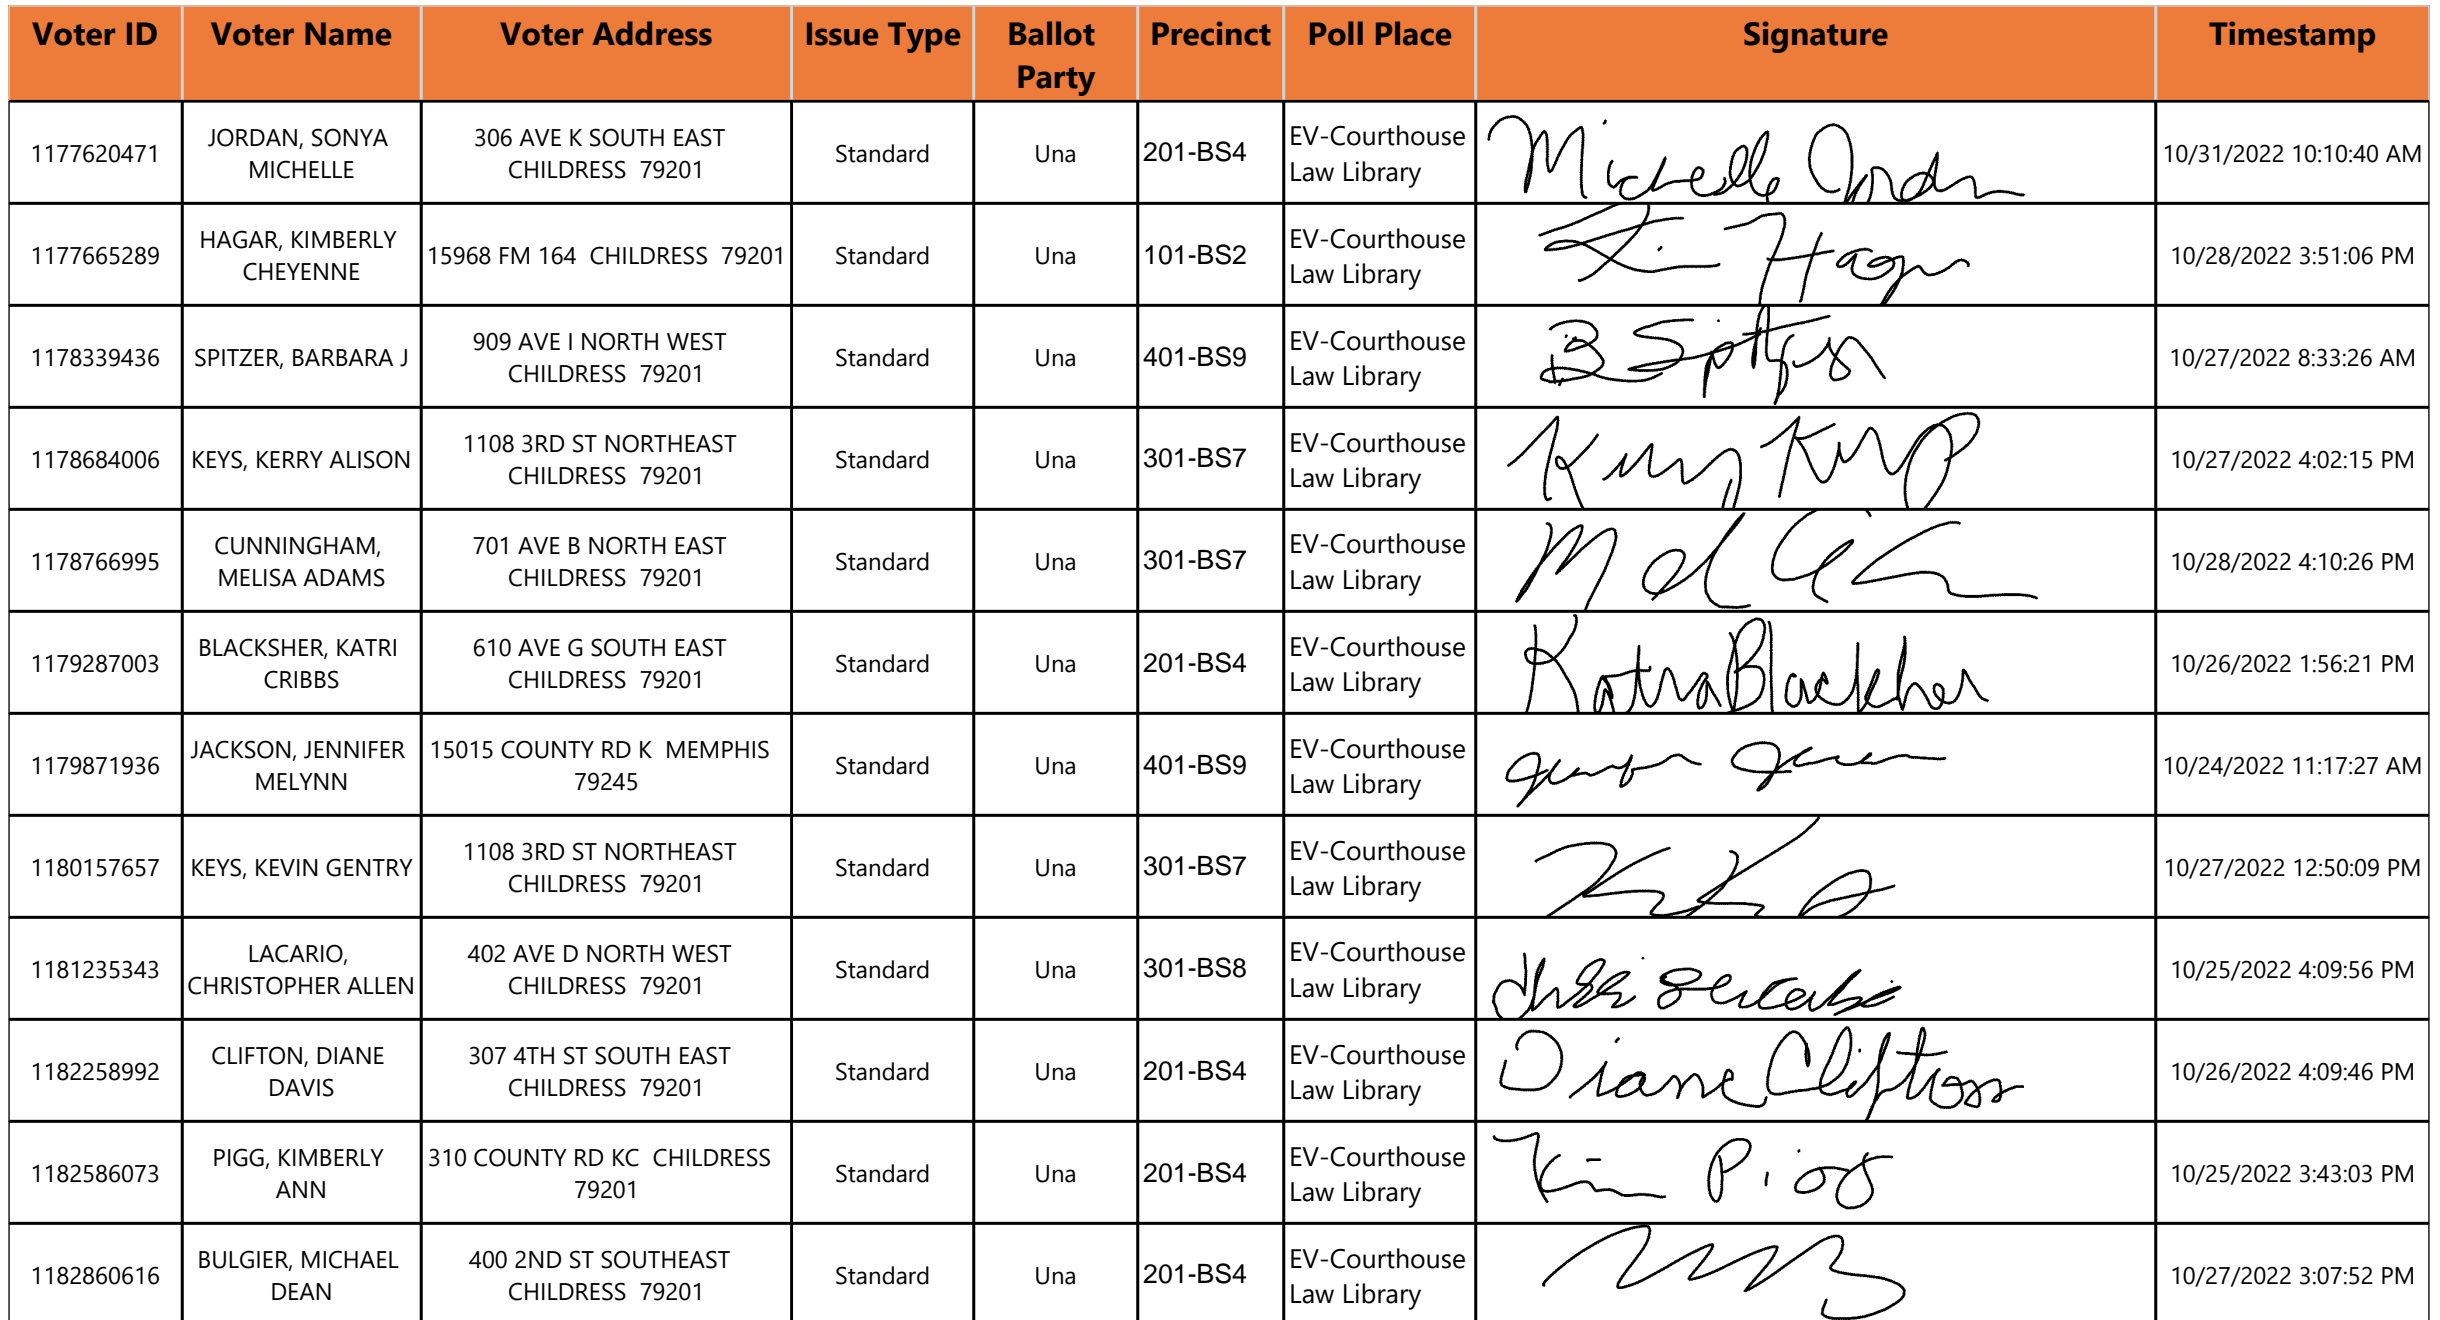 Voter ID Voter Name Voter Address Issue Type Ballot Party Precinct Poll Place Signature Timestamp
1177620471 JORDAN, SONYA MICHELLE 306 AVE K SOUTH EAST CHILDRESS 79201 Standard Una 201-BS4 EV-Courthouse Law Library Michelle Jordan 10/31/2022 10:10:40 AM
1177665289 HAGAR, KIMBERLY CHEYENNE 15968 FM 164 CHILDRESS 79201 Standard Una 101-BS2 EV-Courthouse Law Library Kim Hagar 10/28/2022 3:51:06 PM
1178339436 SPITZER, BARBARA J 909 AVE I NORTH WEST CHILDRESS 79201 Standard Una 401-BS9 EV-Courthouse Law Library B Spitzer 10/27/2022 8:33:26 AM
1178684006 KEYS, KERRY ALISON 1108 3RD ST NORTHEAST CHILDRESS 79201 Standard Una 301-BS7 EV-Courthouse Law Library Kerry Keys 10/27/2022 4:02:15 PM
1178766995 CUNNINGHAM, MELISA ADAMS 701 AVE B NORTH EAST CHILDRESS 79201 Standard Una 301-BS7 EV-Courthouse Law Library 10/28/2022 4:10:26 PM
1179287003 BLACKSHER, KATRI CRIBBS 610 AVE G SOUTH EAST CHILDRESS 79201 Standard Una 201-BS4 EV-Courthouse Law Library 10/26/2022 1:56:21 PM
1179871936 JACKSON, JENNIFER MELYNN 15015 COUNTY RD K MEMPHIS 79245 Standard Una 401-BS9 EV-Courthouse Law Library 10/24/2022 11:17:27 AM
1180157657 KEYS, KEVIN GENTRY 1108 3RD ST NORTHEAST CHILDRESS 79201 Standard Una 301-BS7 EV-Courthouse Law Library 10/27/2022 12:50:09 PM
1181235343 LACARIO, CHRISTOPHER ALLEN 402 AVE D NORTH WEST CHILDRESS 79201 Standard Una 301-BS8 EV-Courthouse Law Library 10/25/2022 4:09:56 PM
1182258992 CLIFTON, DIANE DAVIS 307 4TH ST SOUTH EAST CHILDRESS 79201 Standard Una 201-BS4 EV-Courthouse Law Library Diane Clifton 10/26/2022 4:09:46 PM
1182586073 PIGG, KIMBERLY ANN 310 COUNTY RD KC CHILDRESS 79201 Standard Una 201-BS4 EV-Courthouse Law Library Kim Pigg 10/25/2022 3:43:03 PM
1182860616 BULGIER, MICHAEL DEAN 400 2ND ST SOUTHEAST CHILDRESS 79201 Standard Una 201-BS4 EV-Courthouse Law Library 10/27/2022 3:07:52 PM